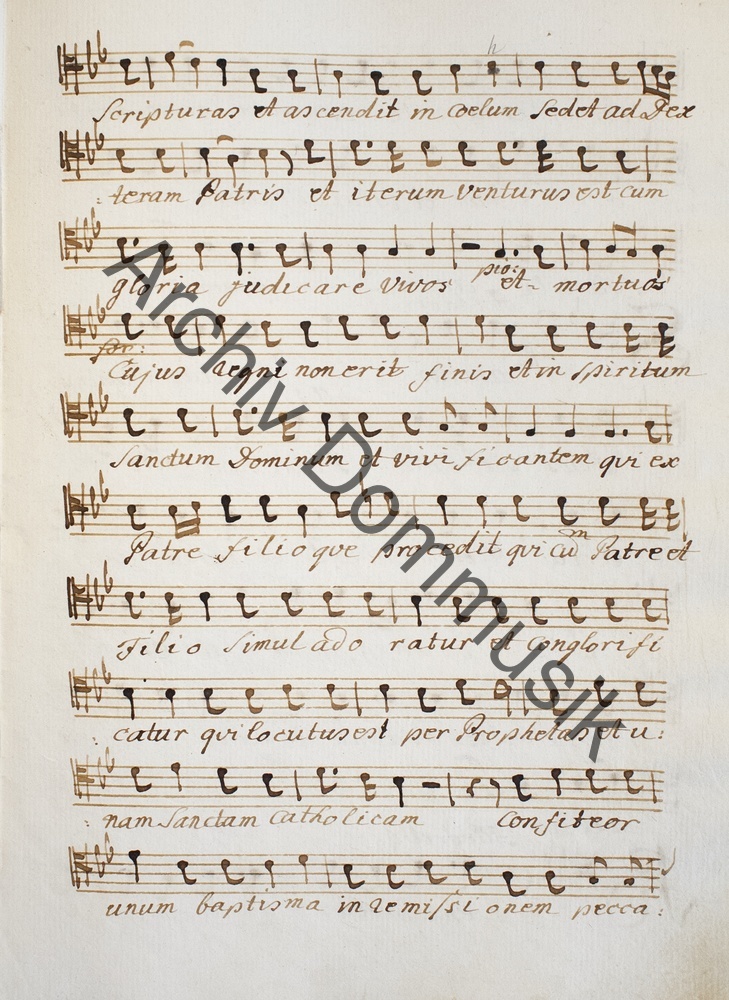 Scripturas et ascendit in Coelum Sedet ad Dex
:teram Patris et iterum Venturus est cum
pio:
gloria judicare vivos et- mortuos
for:
Cujus Regni non erit finis et in Spiritum
Sanctum Dominum et vivificantem qui ex
Patre filioque procedit qui cum Patre et
Filio Simul ado ratur et Conglorifi
:catur qui locutus est per Prophetas et u:
:nam Sanctam Catholicam Confiteor
unum baptisma in remissionem pecca:
Archiv Dommusik